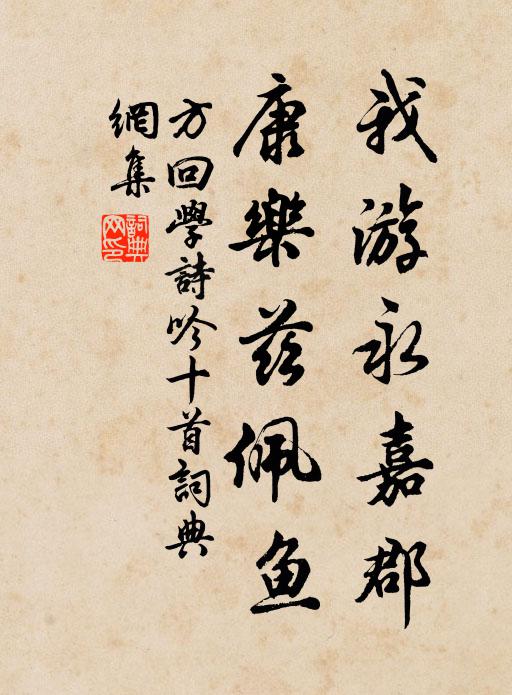 我游永嘉郡
康樂茲佩鱼
方回學詩吟十首詞典
網集
詞典網印